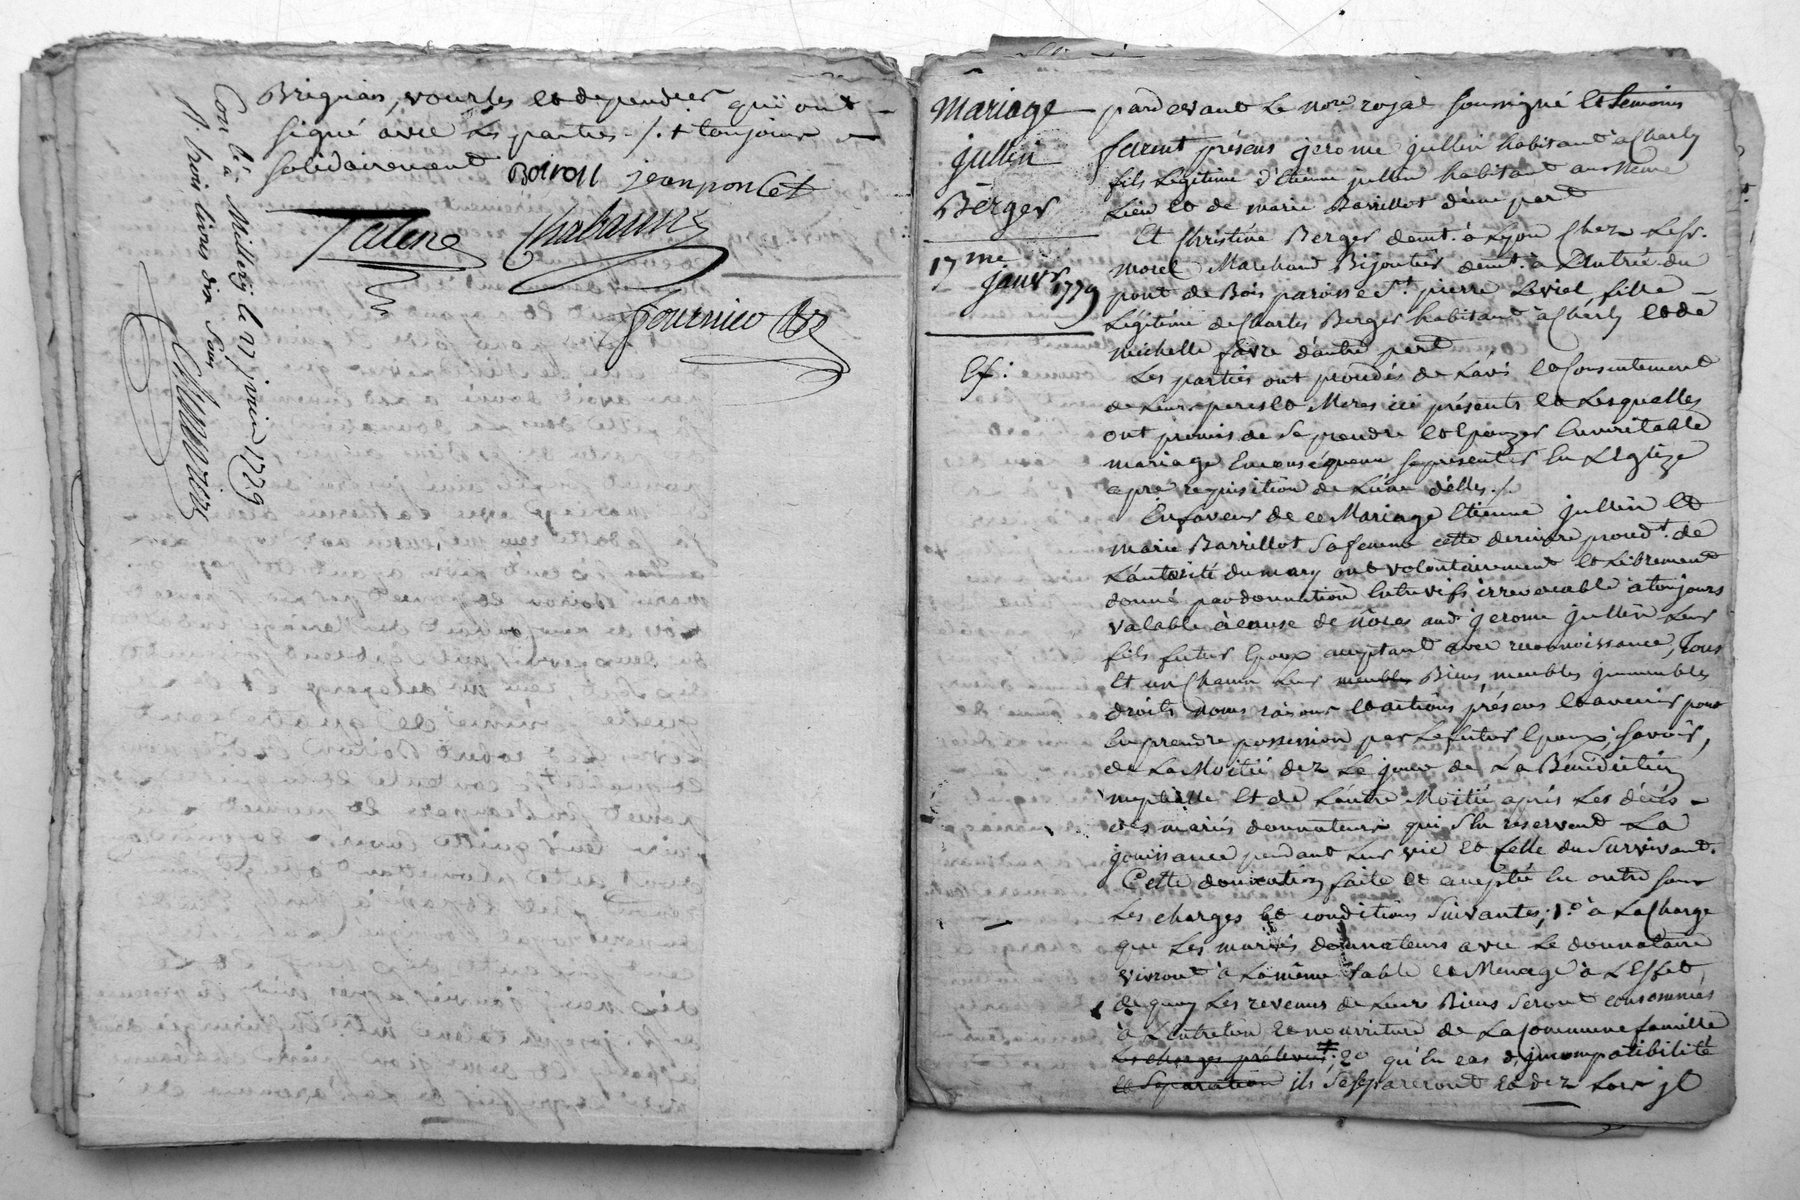 Brignais, vourles et dependces qui ont
signé avec les parties ./. + toujours
solidairement
Boiron jean poncet
Talene Chabanne
fournier
Con.lé à Millery le 27 janvier 1779
R. trois livres dix sous
Mariage
jullien
Berger
17me
janvr 1779
Ex:
pardevant Le nore royal soussigné et temoins
furent présens jerome jullien habitant à Charly
fils Légitime d'étiene jullien habitant au même
Lieu et de marie Barrillot d'une part
Et Christine Berger demt. à Lyon Chez Le Sr.
morel Marchand Bijoutier demt. à L'entrée du
pont de Bois paroisse St. pierre Leviel fille
Légitime de Charles Berger habitant à Charly et de
michelle favre d'autre part
Les parties ont procédés de L'avis et Consentement
de Leurs peres et Meres ici présents et Lesquelles
ont promis de se prendre et Epouzer En véritable
mariage En conséquence se présenter En L'Eglize
a pre requisition de L'une d'elles ./.
En faveur de ce Mariage Etienne jullien et
marie Barrillot sa femme cette derniere procedt. de
L'autorité du mary ont volontairement et Librement
donné par donnation Entrevifs irrevocable à toujours
valable à cause de nôces audt jerome jullien Leur
fils futur Epoux acceptant avec reconnoissance, Tous
Et un Chacun Leurs meubles Biens, meubles jmmeubles
droits noms raisons et actions présens et avenir pour
En prendre possession par Le futur Epoux, Savoir,
de La Moitié dez Le jour de La Bénédiction
nuptialle Et de L'autre Moitié après Les décès
des mariés donnateurs qui s'En reservent La
jouissance pendant Leur vie et Celle du survivant.
Cette donnation faite et acceptée En outre sous
Les charges et conditions suivantes; 1.° à La Charge
que Les mariés donnateurs avec Le donnataire
vivront à La même table et Menage à L'Effet
de quoy Les revenus de Leurs Biens seront consommés
à L'Entretien et nourriture de La Commune famille
Les charges prélevées ; 2° qu'En cas d'jncompatibilité
et Séparation ils se sépareront et dez Lors jl